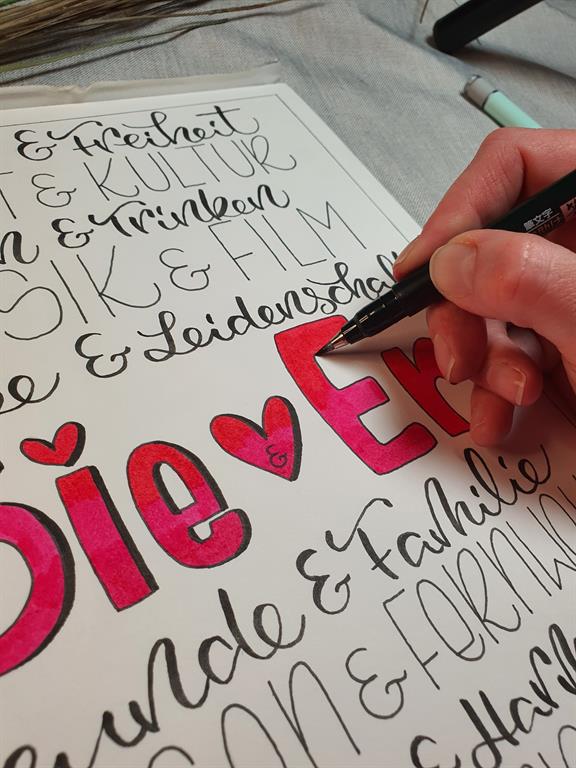 & Freiheit
T & KULTUR
n & Trinken
SIK & FILM
e & Leidenschaf
Sie & Er
unde & Familie
ON & FERNW
& Harm
筆文字